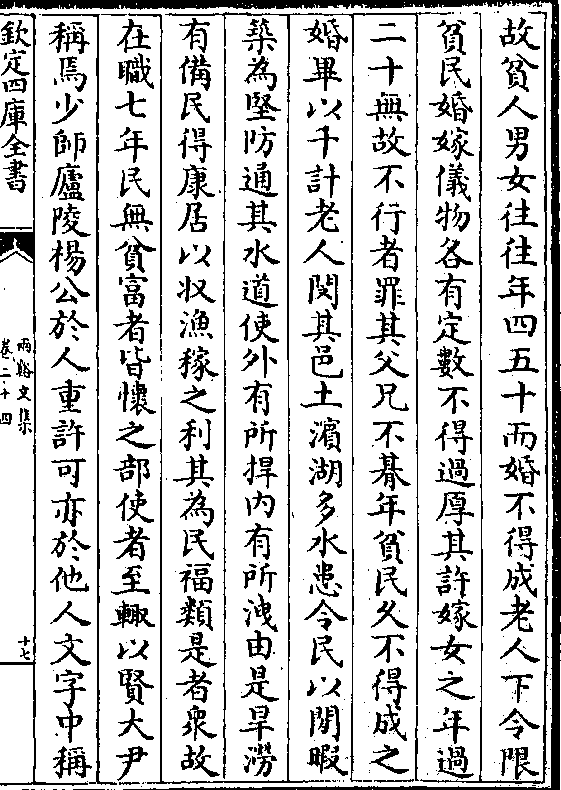 故貧人男女往往年四五十而婚不得成老人下令限
貧民婚嫁儀物各有定數不得過厚其許嫁女之年過
二十無故不行者罪其父兄不朞年貧民久不得成之
婚畢以千計老人閔其邑土濵湖多水患令民以閒暇
築為堅防通其水道使外有所捍内有所洩由是旱澇
有備民得康居以収漁稼之利其為民福類是者衆故
在職七年民無貧富者皆懷之部使者至輒以賢大尹
稱焉少師廬陵楊公於人重許可亦於他人文字中稱
欽定四庫全書
兩谿文集
卷二十四
十七